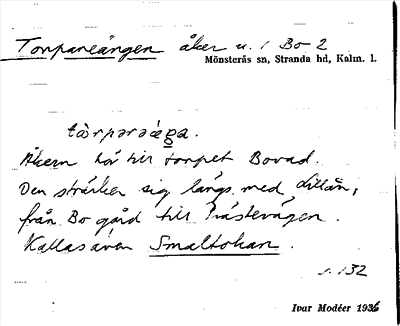 Torpareängen åker u. 1 Bo 2
Mönsterås sn, Stranda hd, Kalm. l.
tàrpərəæga.
Åkern hör till torpet Bovad.
Den sträcker sig längs med Lillån,
från Bo gård till Prästevägen.
Kallas även Smaltokan.
s. 132
Ivar Modéer 1936